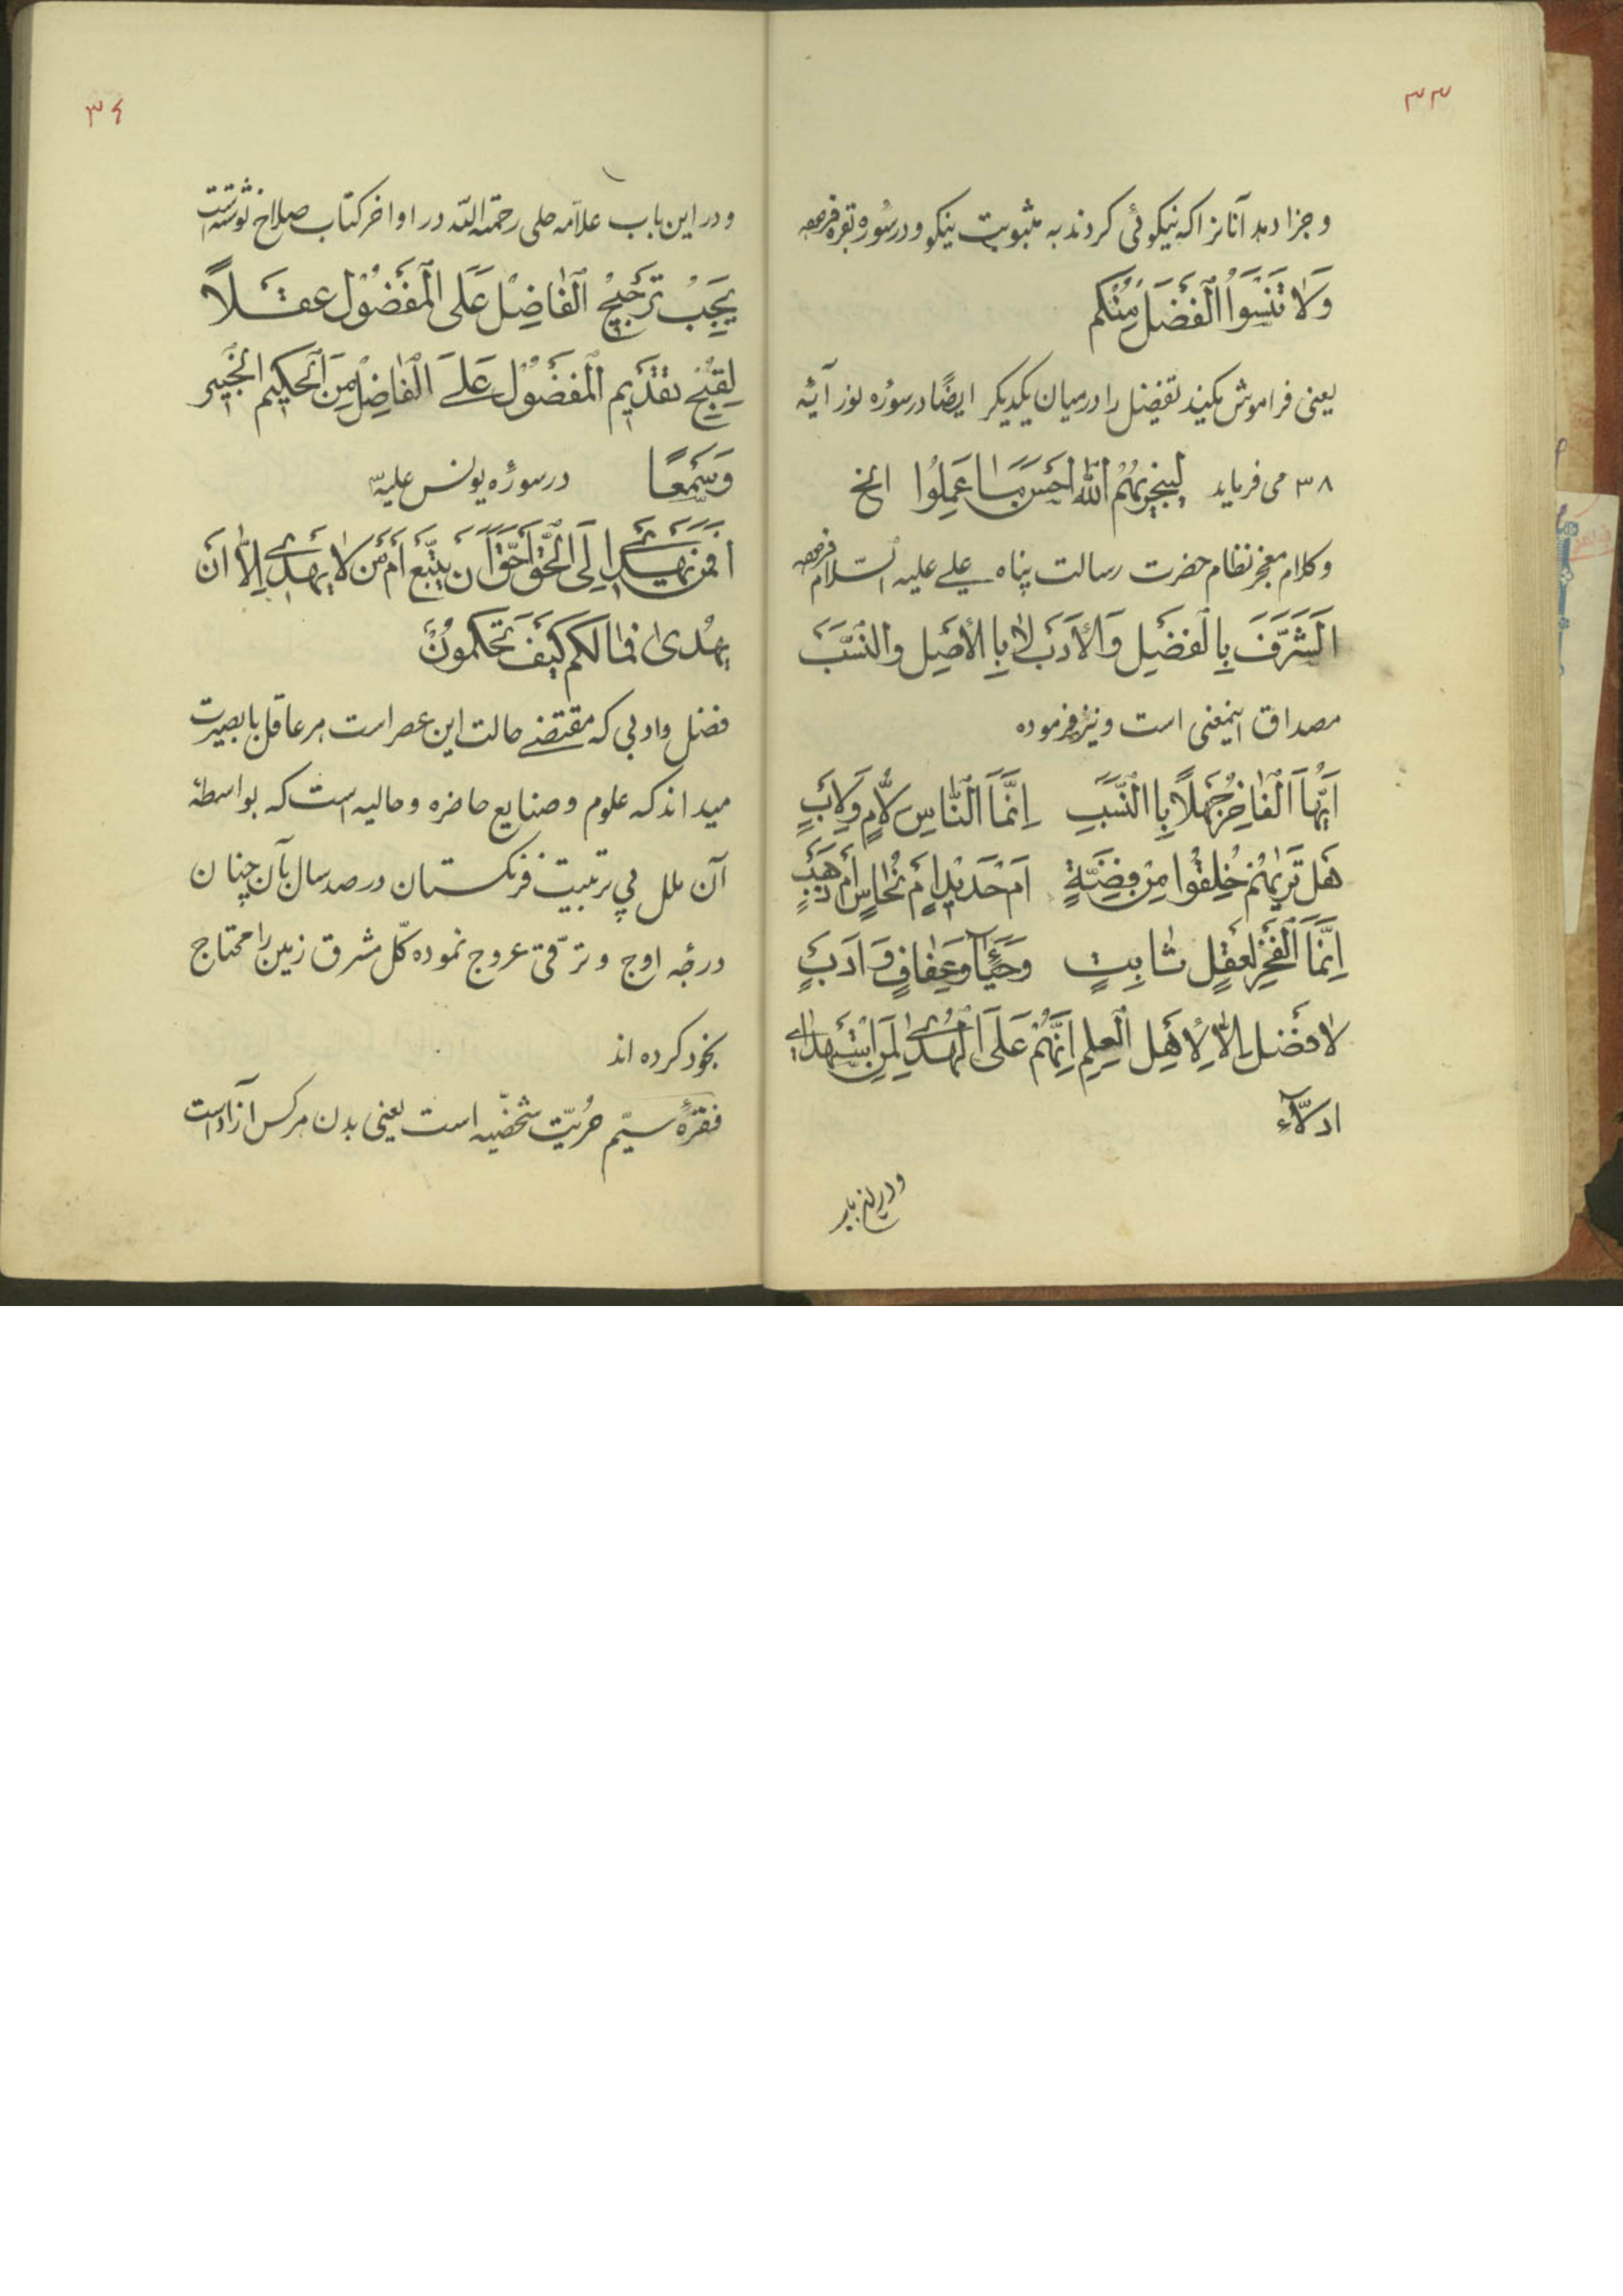 ۳۳
و جزا دهد آنانرا که نیکوئی کردند به مثوبت نیکو و در سوره بقره فرموده
وَلا تَنْسَوُا الْفَضْلَ مِنْکم
یعنی فراموش مکنید تفضل را در میان یکدیگر ایضًا در سوره نور آیه
۳۸ می فرماید لِیَجْزِیَهُمُ اللّٰهُ اَحْسَنَ مَا عَمِلُوا الخ
و کلام معجز نظام حضرت رسالت پناه علی علیه السّلام فرموده
الشَّرَفُ بِالْفَضْلِ وَالْأَدَبِ لا بِالْأَصْلِ وَالنَّسَبِ
مصداق اینمعنی است و نیز فرموده
اَیُّهَا الْفاخِرُ جَهْلًا بِاالنَّسَبِ اِنَّمَا النّاسِ لِاُمٍّ وَلِاَبٍ
هَلْ تَریٰهُمْ خُلِقُوا مِنْ فِضَّةٍ اَمْ حَدیدٍ اَمْ نُحاسٍ اَمْ ذَهَبٍ
اِنَّمَا الْفَخْرُ لِعَقْلٍ ثابِتٍ وَحَیآءٍ وَعِفافٍ وَ اَدَبٍ
لا فَضْلَ اِلّا لِاَهْلِ الْعِلْمِ اِنَّهُمْ عَلَی الْهُدیٰ لِمَنِ اسْتَهْدیٰ
ادلّآءِ
و در این باب
۳٤
و در این باب علاّمه حلی رحمة اللّه در اواخر کتاب صلاح نوشته است
یَجِبْ تَرْجیحُ الْفاضِلْ عَلَی الْمَفْضُولْ عقلًا
لِقُبْحِ تقْدیم الْمَفْضُولْ عَلَی الْفاضِلْ مِنَ الْحَکیم الْخَبیر
وَسَمْعًا در سوره یونس علیه
اَفَمَنْ یَهْدی اِلَی الْحَقِّ اَحَقُّ اَنْ یُتَّبَعَ اَمْ مَنْ لا یَهِدّی اِلّا اَنْ
یُهْدیٰ فَمالَکُم کَیْفَ تَحْکُمُونْ
فضل و ادبی که مقتضی حالت این عصر است هر عاقل با بصیرت
میداند که علوم و صنایع حاضره و حالیه است که بواسطه
آن ملل بی تربیت فرنگستان در صد سال بآن چنان
درجه اوج و ترّقی عروج نموده کلّ مشرق زمین را محتاج
بخود کرده اند
فقرۀ سیّم حُریّت شخصّیه است یعنی بدن هر کس آزاد است